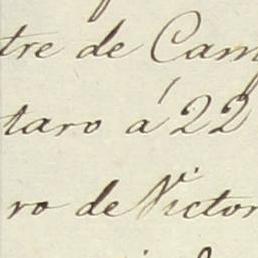 tre de Cam
taro á 22
ro de Victor